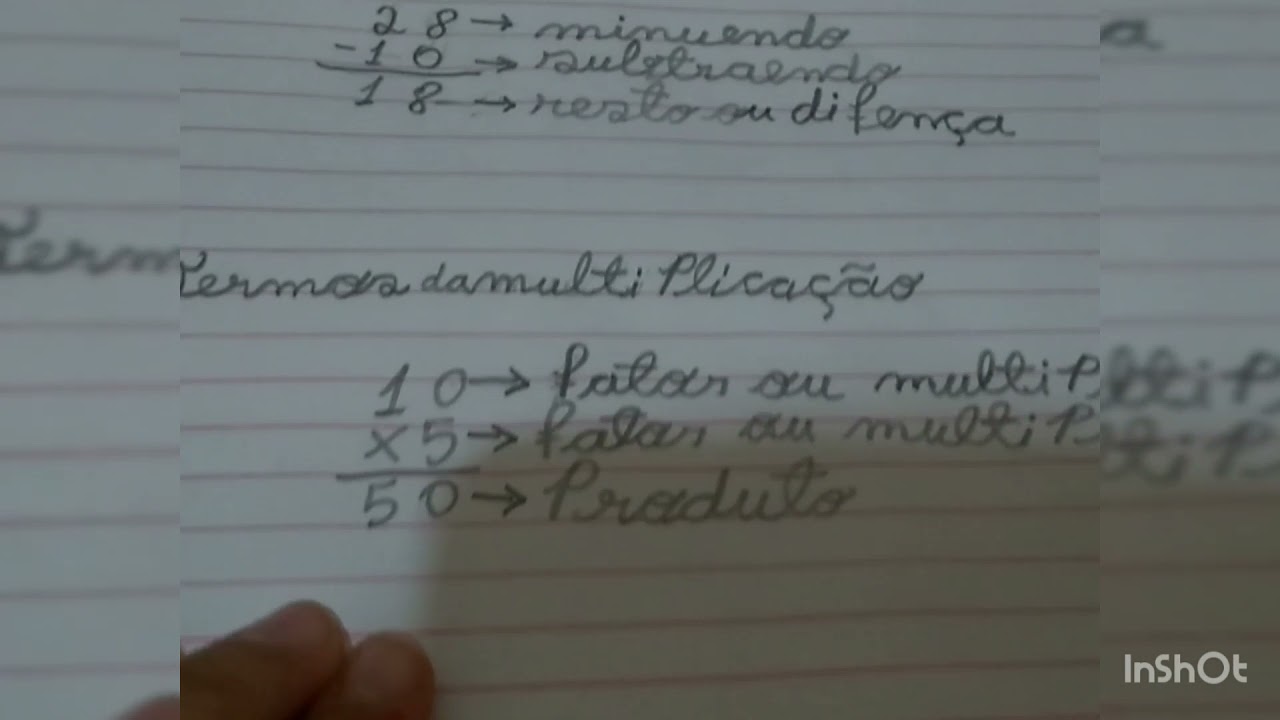 28 → minuendo
-10 → subtraendo
18 → resto ou difença
Termos da multiplicação
10 → fator ou multip
x5 → fator ou multip
50 → Produto
InShOt